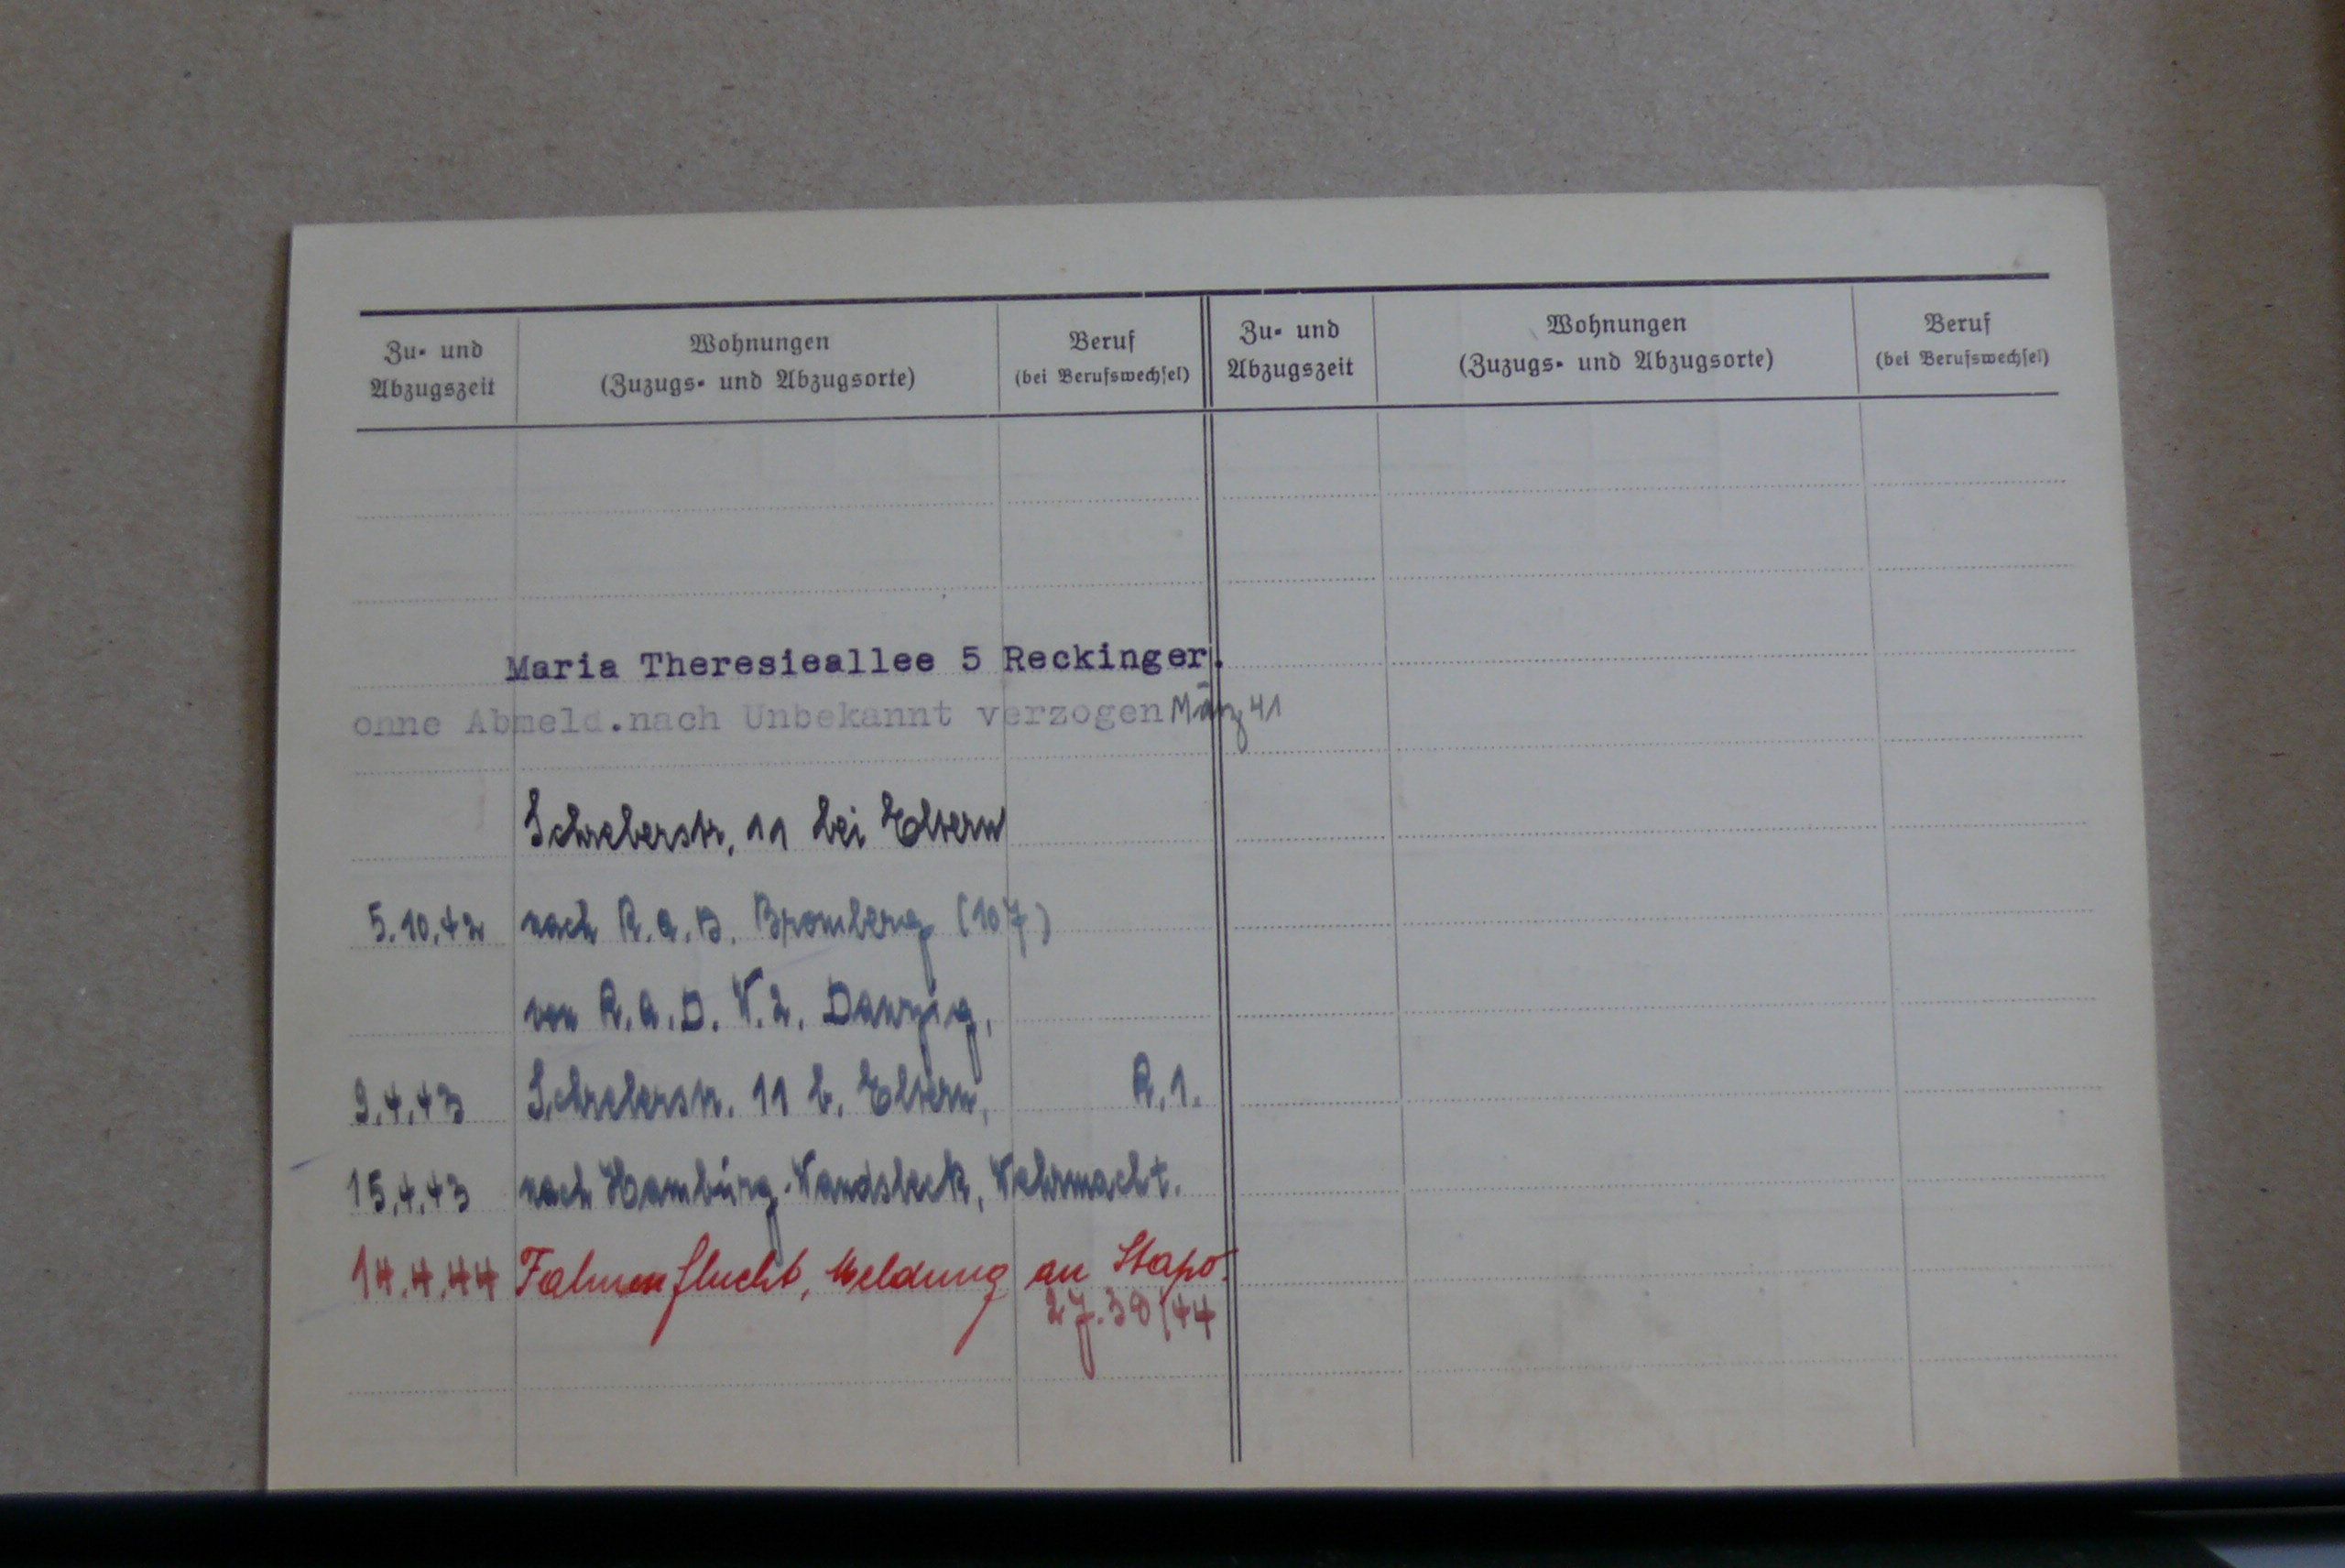 Zu- und
Abzugszeit
Wohnungen
(Zuzugs- und Abzugsorte)
Beruf
(bei Berufswechsel)
Zu- und
Abzugszeit
Wohnungen
(Zuzugs- und Abzugsorte)
Beruf
(bei Berufswechsel)
Maria Theresieallee 5 Reckinger.
ohne Abmeld.nach Unbekannt verzogen März 41
Schreberstr. 11 bei Eltern
5.10.42 nach R.A.D. Bromberg (107)
von R.A.D. W.2. Danzig,
9.4.43 Schreberstr. 11 b. Eltern, R.1.
15.4.43 nach Hamburg-Wandsbeck, Wehrmacht.
14.4.44 Fahnenflucht, Meldung an Stapo.
27.38/44